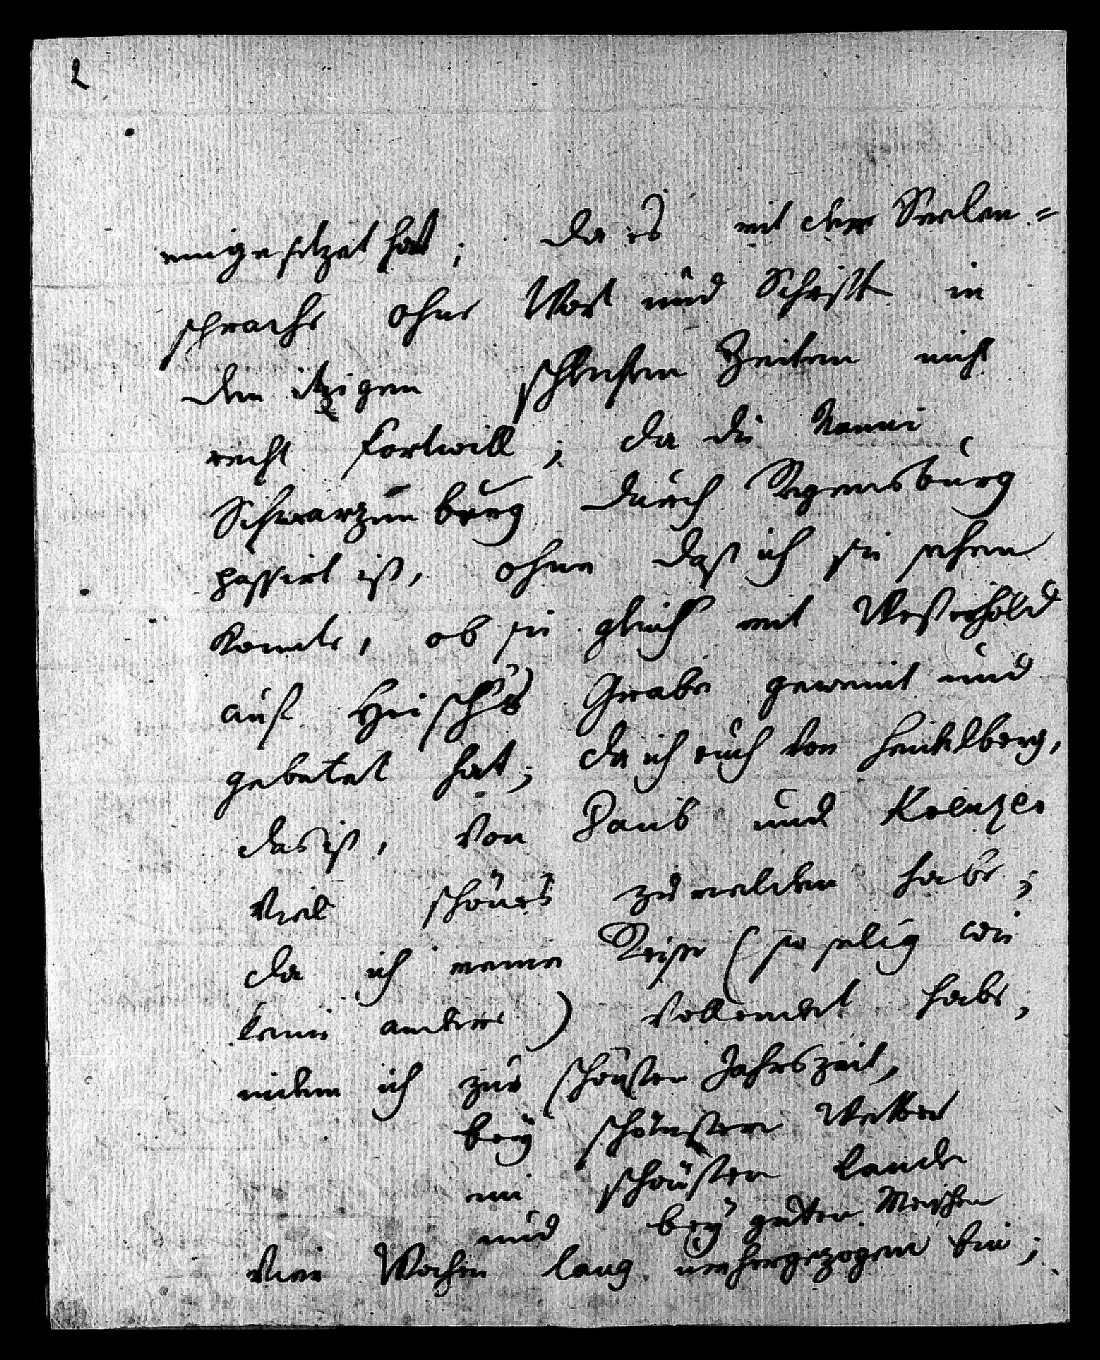 2
eingesetzet hat; da es mit der Seelen=
sprache ohne Wort und Schrift in
den itzigen schlechten Zeiten nicht
recht fortwill; da die Nanni
Schwarzenburg durch Regensburg
passirt ist, ohne daß ich sie sehen
konnte, ob sie gleich mit Westerhold
auf Grabe geweint und
gebetet hat; da ich euch von Heidelberg,
das ist, von Daub und Kreuzer
viel schönes zu melden habe;
da ich meine Reise (so selig wie
keine andere) vollendet habe,
indem ich zur schönsten Jahrszeit,
bey schönsten Wetter
im schönsten Lande
und bey guten Menschen
vier Wochen lang umhergezogen bin;